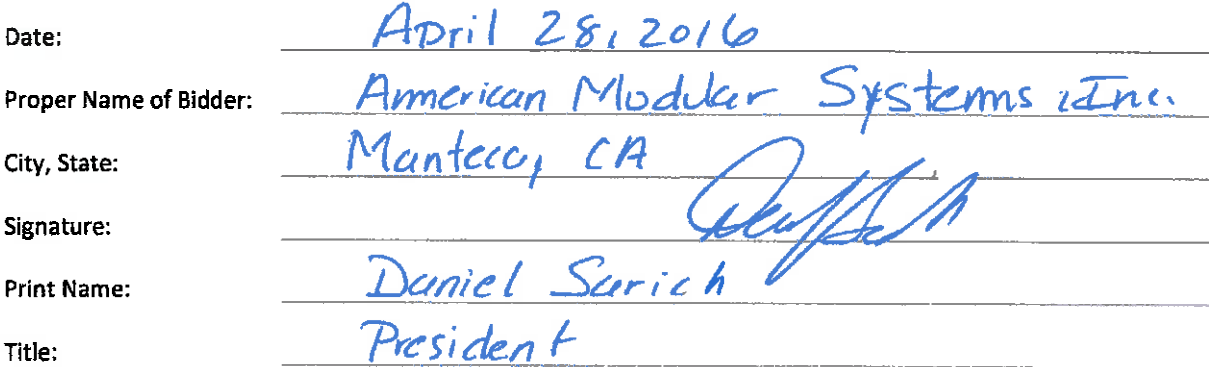 Date: April 28, 2016
Proper Name of Bidder: American Modular Systems, Inc.
City, State: Manteca, CA
Signature:
Print Name: Daniel Sarich
Title: President